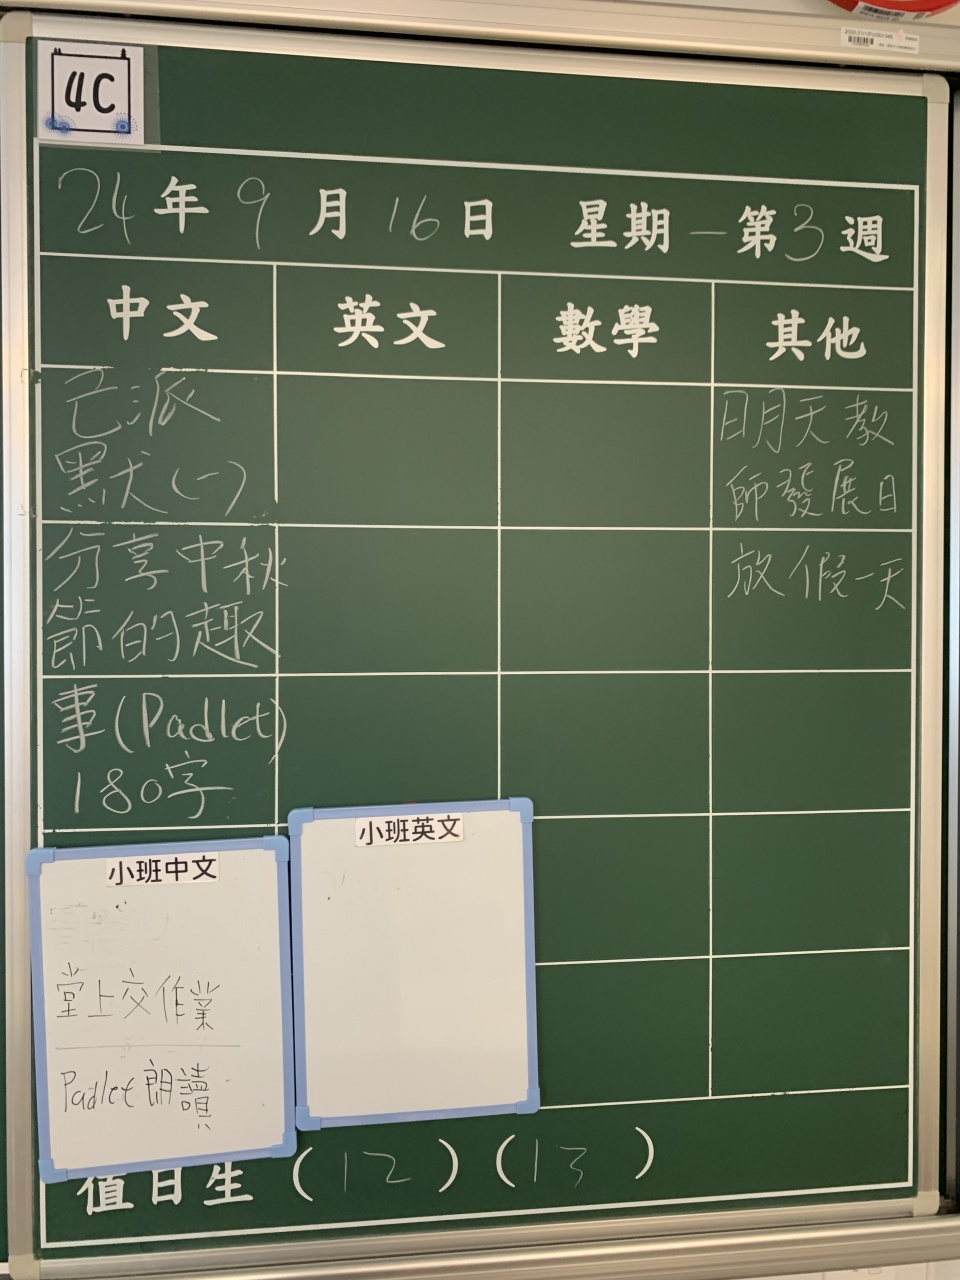 4C
24年9月16日 星期一第3週
中文 英文 數學 其他
已派
默犬(一)
分享中秋
節的趣
事(Padlet)
180字
明天教
師發展日
放假一天
小班中文
堂上交作業
Padlet朗讀
小班英文
值日生(12)(13)